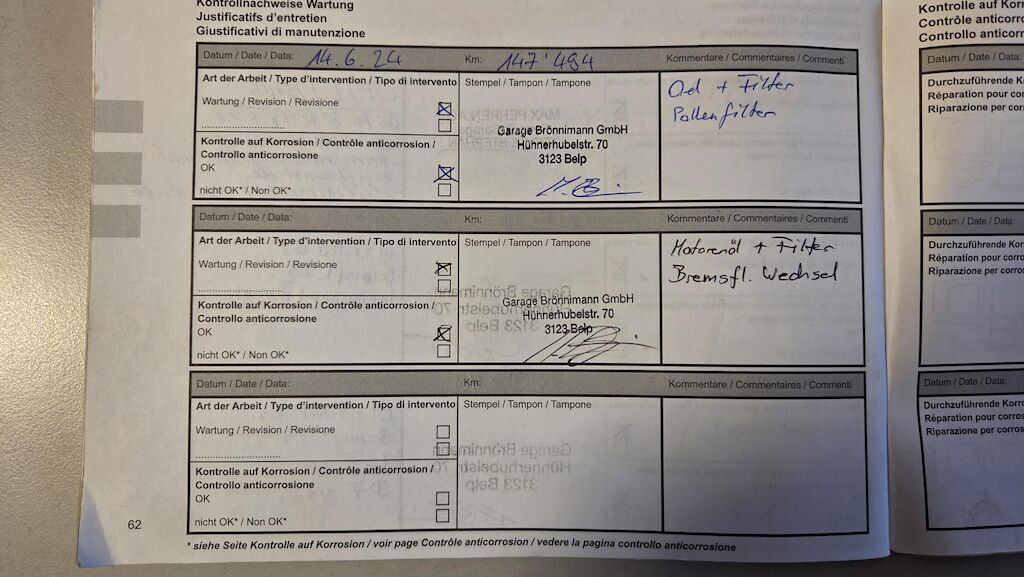 Kontrollnachweise Wartung
Justificatifs d'entretien
Giustificativi di manutenzione
Datum / Date / Data: 14.6.24 Km: 147'494 Kommentare / Commentaires / Commenti
Art der Arbeit / Type d'intervention / Tipo di intervento Stempel / Tampon / Tampone
Oel + Filter
Wartung / Revision / Revisione
Pollenfilter
Garage Brönnimann GmbH
Hühnerhubelstr. 70
3123 Belp
Kontrolle auf Korrosion / Contrôle anticorrosion /
Controllo anticorrosione
OK
nicht OK* / Non OK*
Datum / Date / Data: Km: Kommentare / Commentaires / Commenti
Art der Arbeit / Type d'intervention / Tipo di intervento Stempel / Tampon / Tampone
Motorenöl + Filter
Wartung / Revision / Revisione
Bremsfl. Wechsel
Garage Brönnimann GmbH
Hühnerhubelstr. 70
3123 Belp
Kontrolle auf Korrosion / Contrôle anticorrosion /
Controllo anticorrosione
OK
nicht OK* / Non OK*
Datum / Date / Data: Km: Kommentare / Commentaires / Commenti
Art der Arbeit / Type d'intervention / Tipo di intervento Stempel / Tampon / Tampone
Wartung / Revision / Revisione
Kontrolle auf Korrosion / Contrôle anticorrosion /
Controllo anticorrosione
OK
nicht OK* / Non OK*
62
* siehe Seite Kontrolle auf Korrosion / voir page Contrôle anticorrosion / vedere la pagina controllo anticorrosione
Kontrolle auf
Contrôle
Controllo
Datum / Date / Data:
Durchzuführende
Réparation pour
Riparazione per
Datum / Date / Data:
Durchzuführende
Réparation pour
Riparazione per
Datum / Date / Data:
Durchzuführende
Réparation pour
Riparazione per